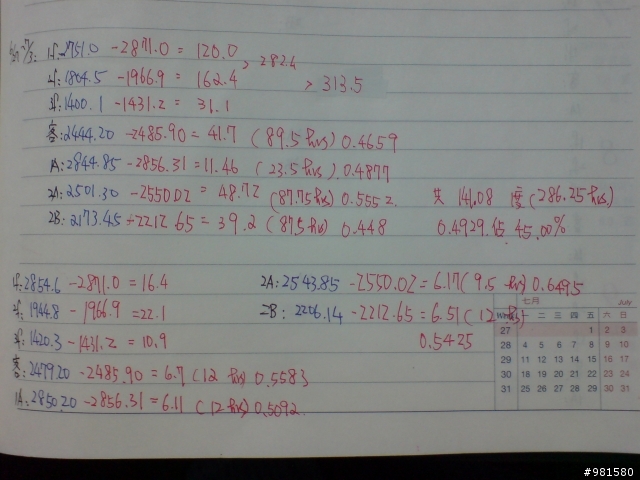 1f:2751.0 -2871.0 = 120.0
, 282.4
2f:1804.5 -1966.9 = 162.4
> 313.5
3f:1400.1 -1431.2 = 31.1
客:2444.20 -2485.90 = 41.7 (89.5 hrs) 0.4659
1A:2844.85 -2856.31 = 11.46 (23.5 hrs) 0.4877
2A:2501.30 -2550.02 = 48.72 (87.75 hrs) 0.5552 共 141.08 度 (286.25 hrs)
2B:2173.45 -2212.65 = 39.2 (87.5 hrs) 0.448 0.4929 佔 45.00%
1f:2854.6 -2871.0 = 16.4 2A:2543.85 -2550.02 = 6.17 (9.5 hrs) 0.6495
2f:1944.8 -1966.9 = 22.1 2B:2206.14 -2212.65 = 6.51 (12 hrs)
3f:1420.3 -1431.2 = 10.9 0.5425
客:2479.20 -2485.90 = 6.7 (12 hrs) 0.5583
1A:2850.20 -2856.31 = 6.11 (12 hrs) 0.5092
七月 July
一 二 三 四 五 六 日
27 1 2 3
28 4 5 6 7 8 9 10
29 11 12 13 14 15 16 17
30 18 19 20 21 22 23 24
31 25 26 27 28 29 30 31
#981580